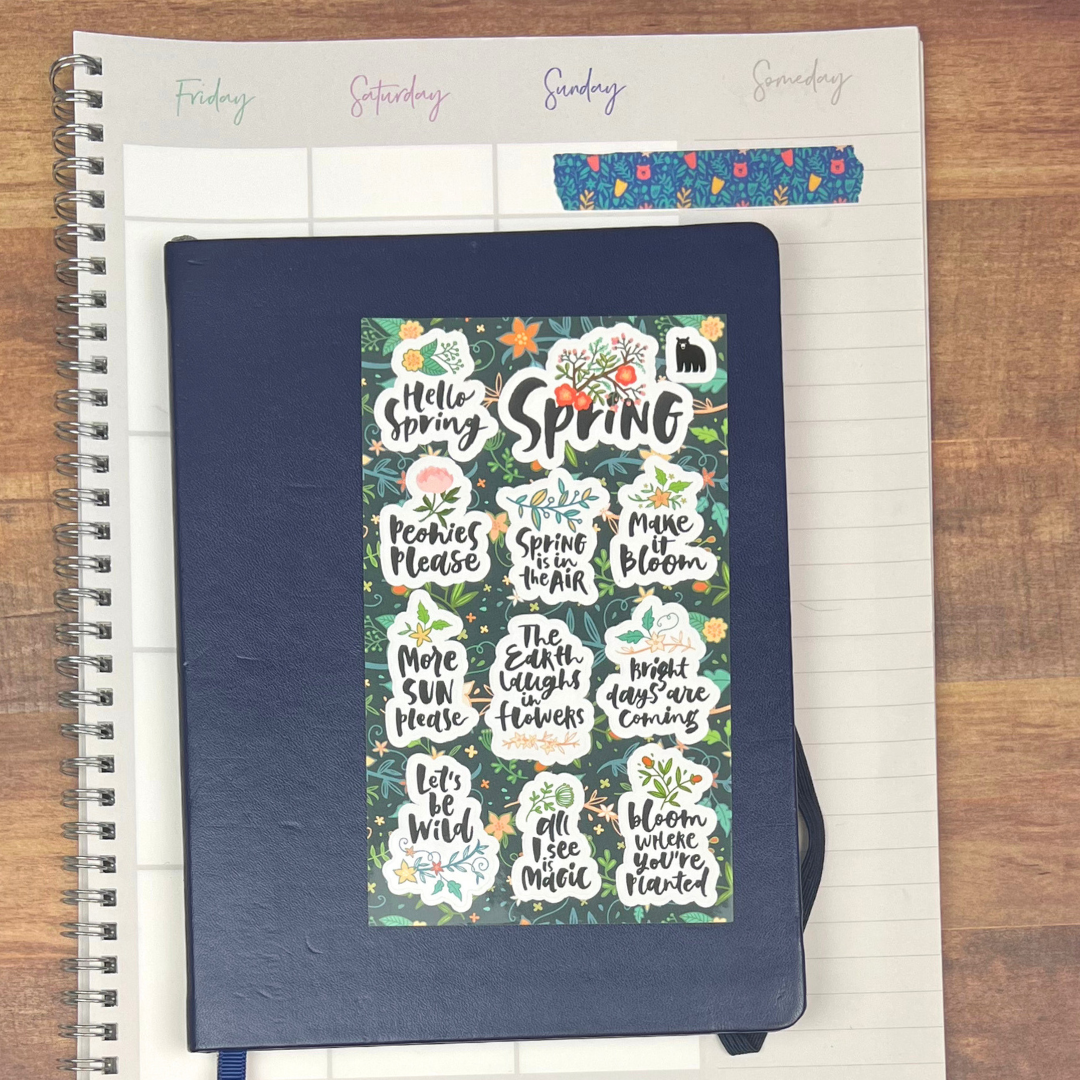 Friday Saturday Sunday Someday
Hello
Spring
SpriNG
Peonies
Please
SpriNG
is in
the AIR
Make
it
Bloom
More
SUN
please
The
Earth
laughs
in
flowers
Bright
days are
coming
Let's
be
Wild
all
I see
is
Magic
bloom
where
you're
planted